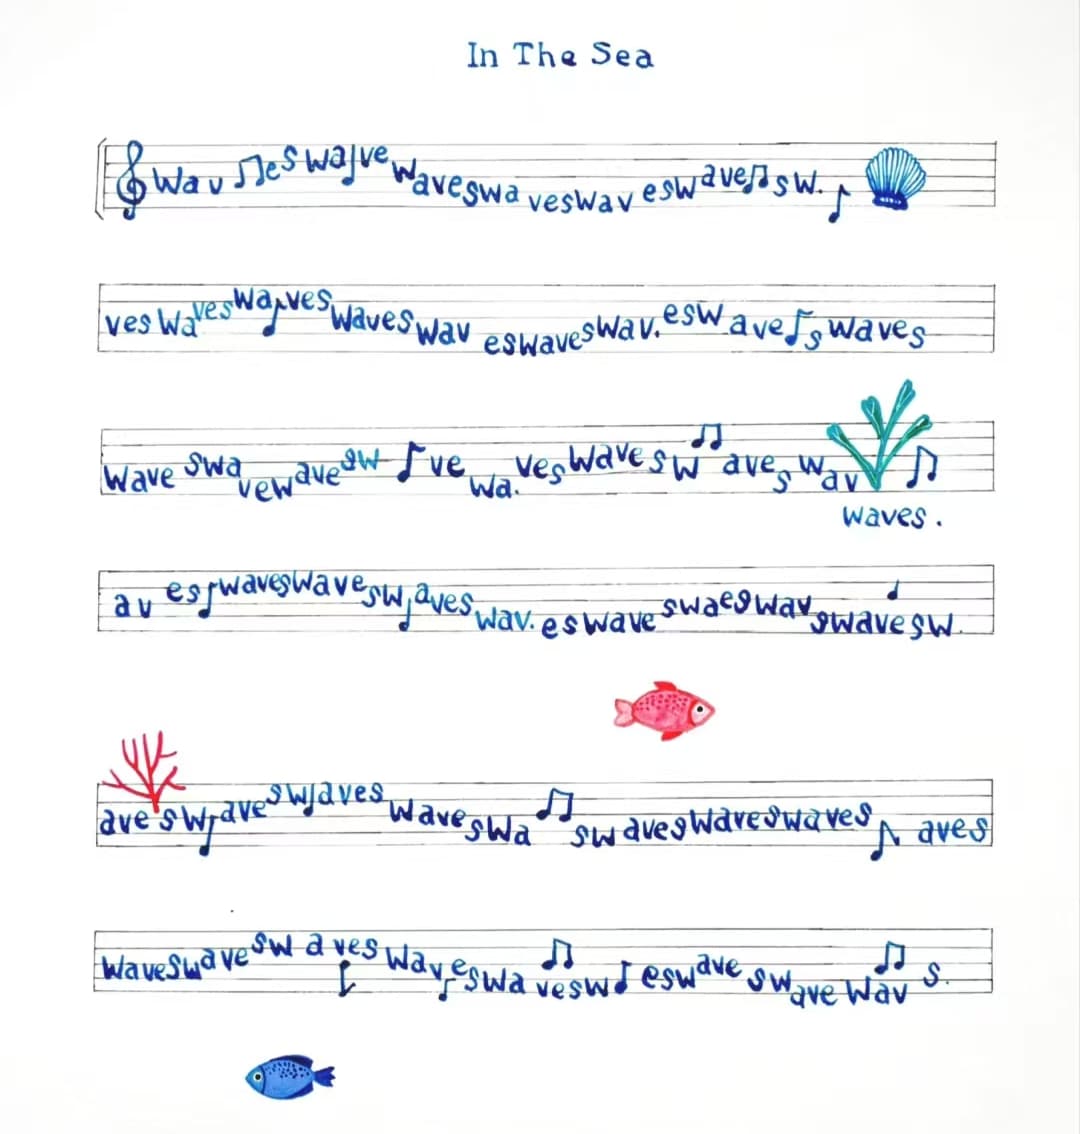 In The Sea
wav eswa ve waveswa veswav eswave sw.
ves waveswa veswaveswav eswaveswav.esw ave swaves
wave swa vewavesw ve wa.veswave sw aves wav
waves.
av es waveswavesw aves wav. eswave swaeswav swavesw.
ave sw ave sw aves waveswa sw aveswaveswaves aves
waveswavesw aves wav eswa vesw eswave swave wav s.